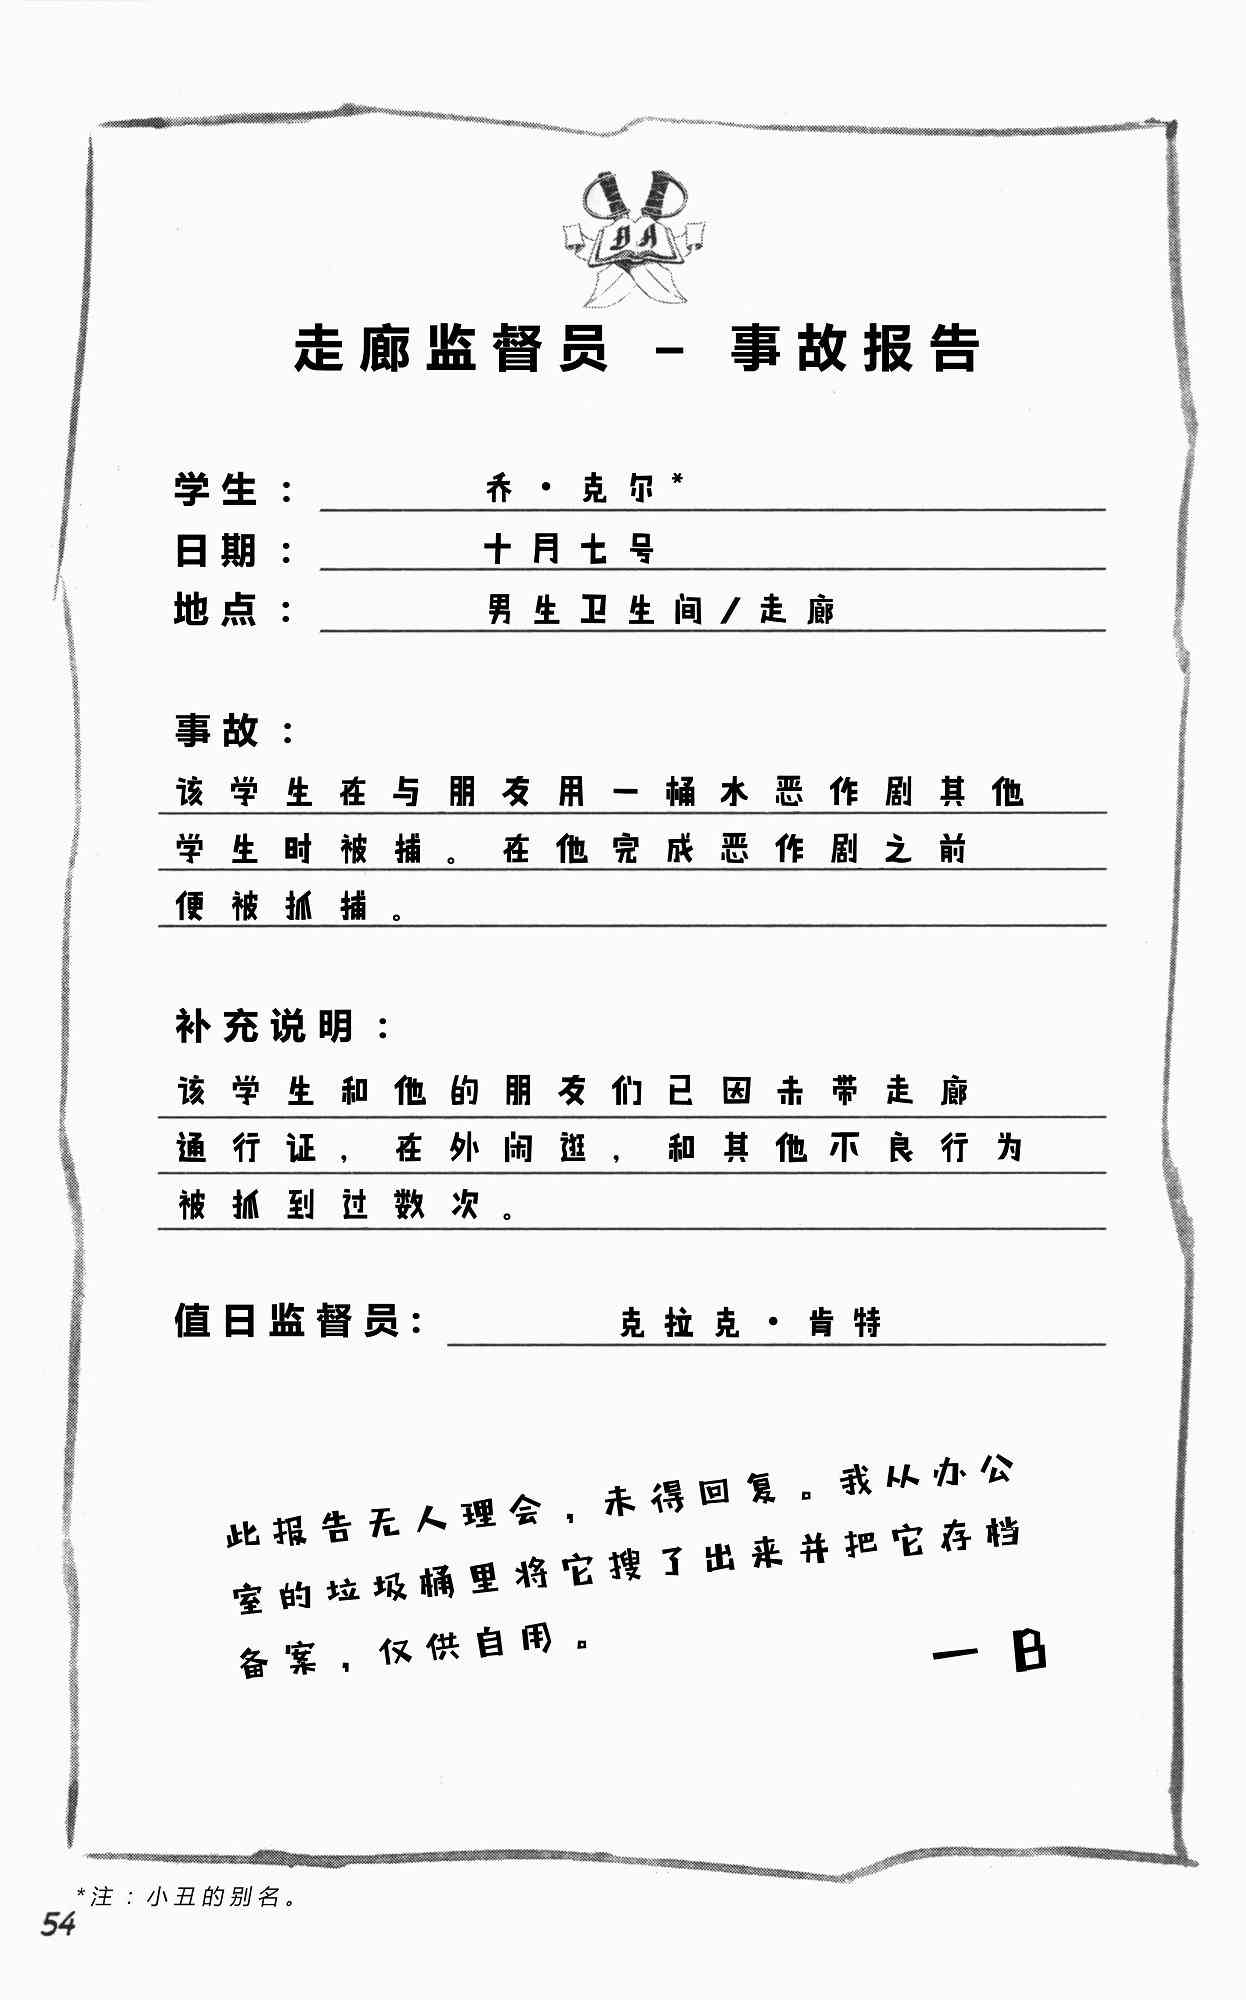 DA
走廊监督员 - 事故报告
学生： 乔·克尔*
日期： 十月七号
地点： 男生卫生间/走廊
事故：
该学生在与朋友用一桶水恶作剧其他
学生时被捕。在他完成恶作剧之前
便被抓捕。
补充说明：
该学生和他的朋友们已因未带走廊
通行证，在外闲逛，和其他不良行为
被抓到过数次。
值日监督员： 克拉克·肯特
此报告无人理会，未得回复。我从办公
室的垃圾桶里将它搜了出来并把它存档
备案，仅供自用。
一 B
*注：小丑的别名。
54